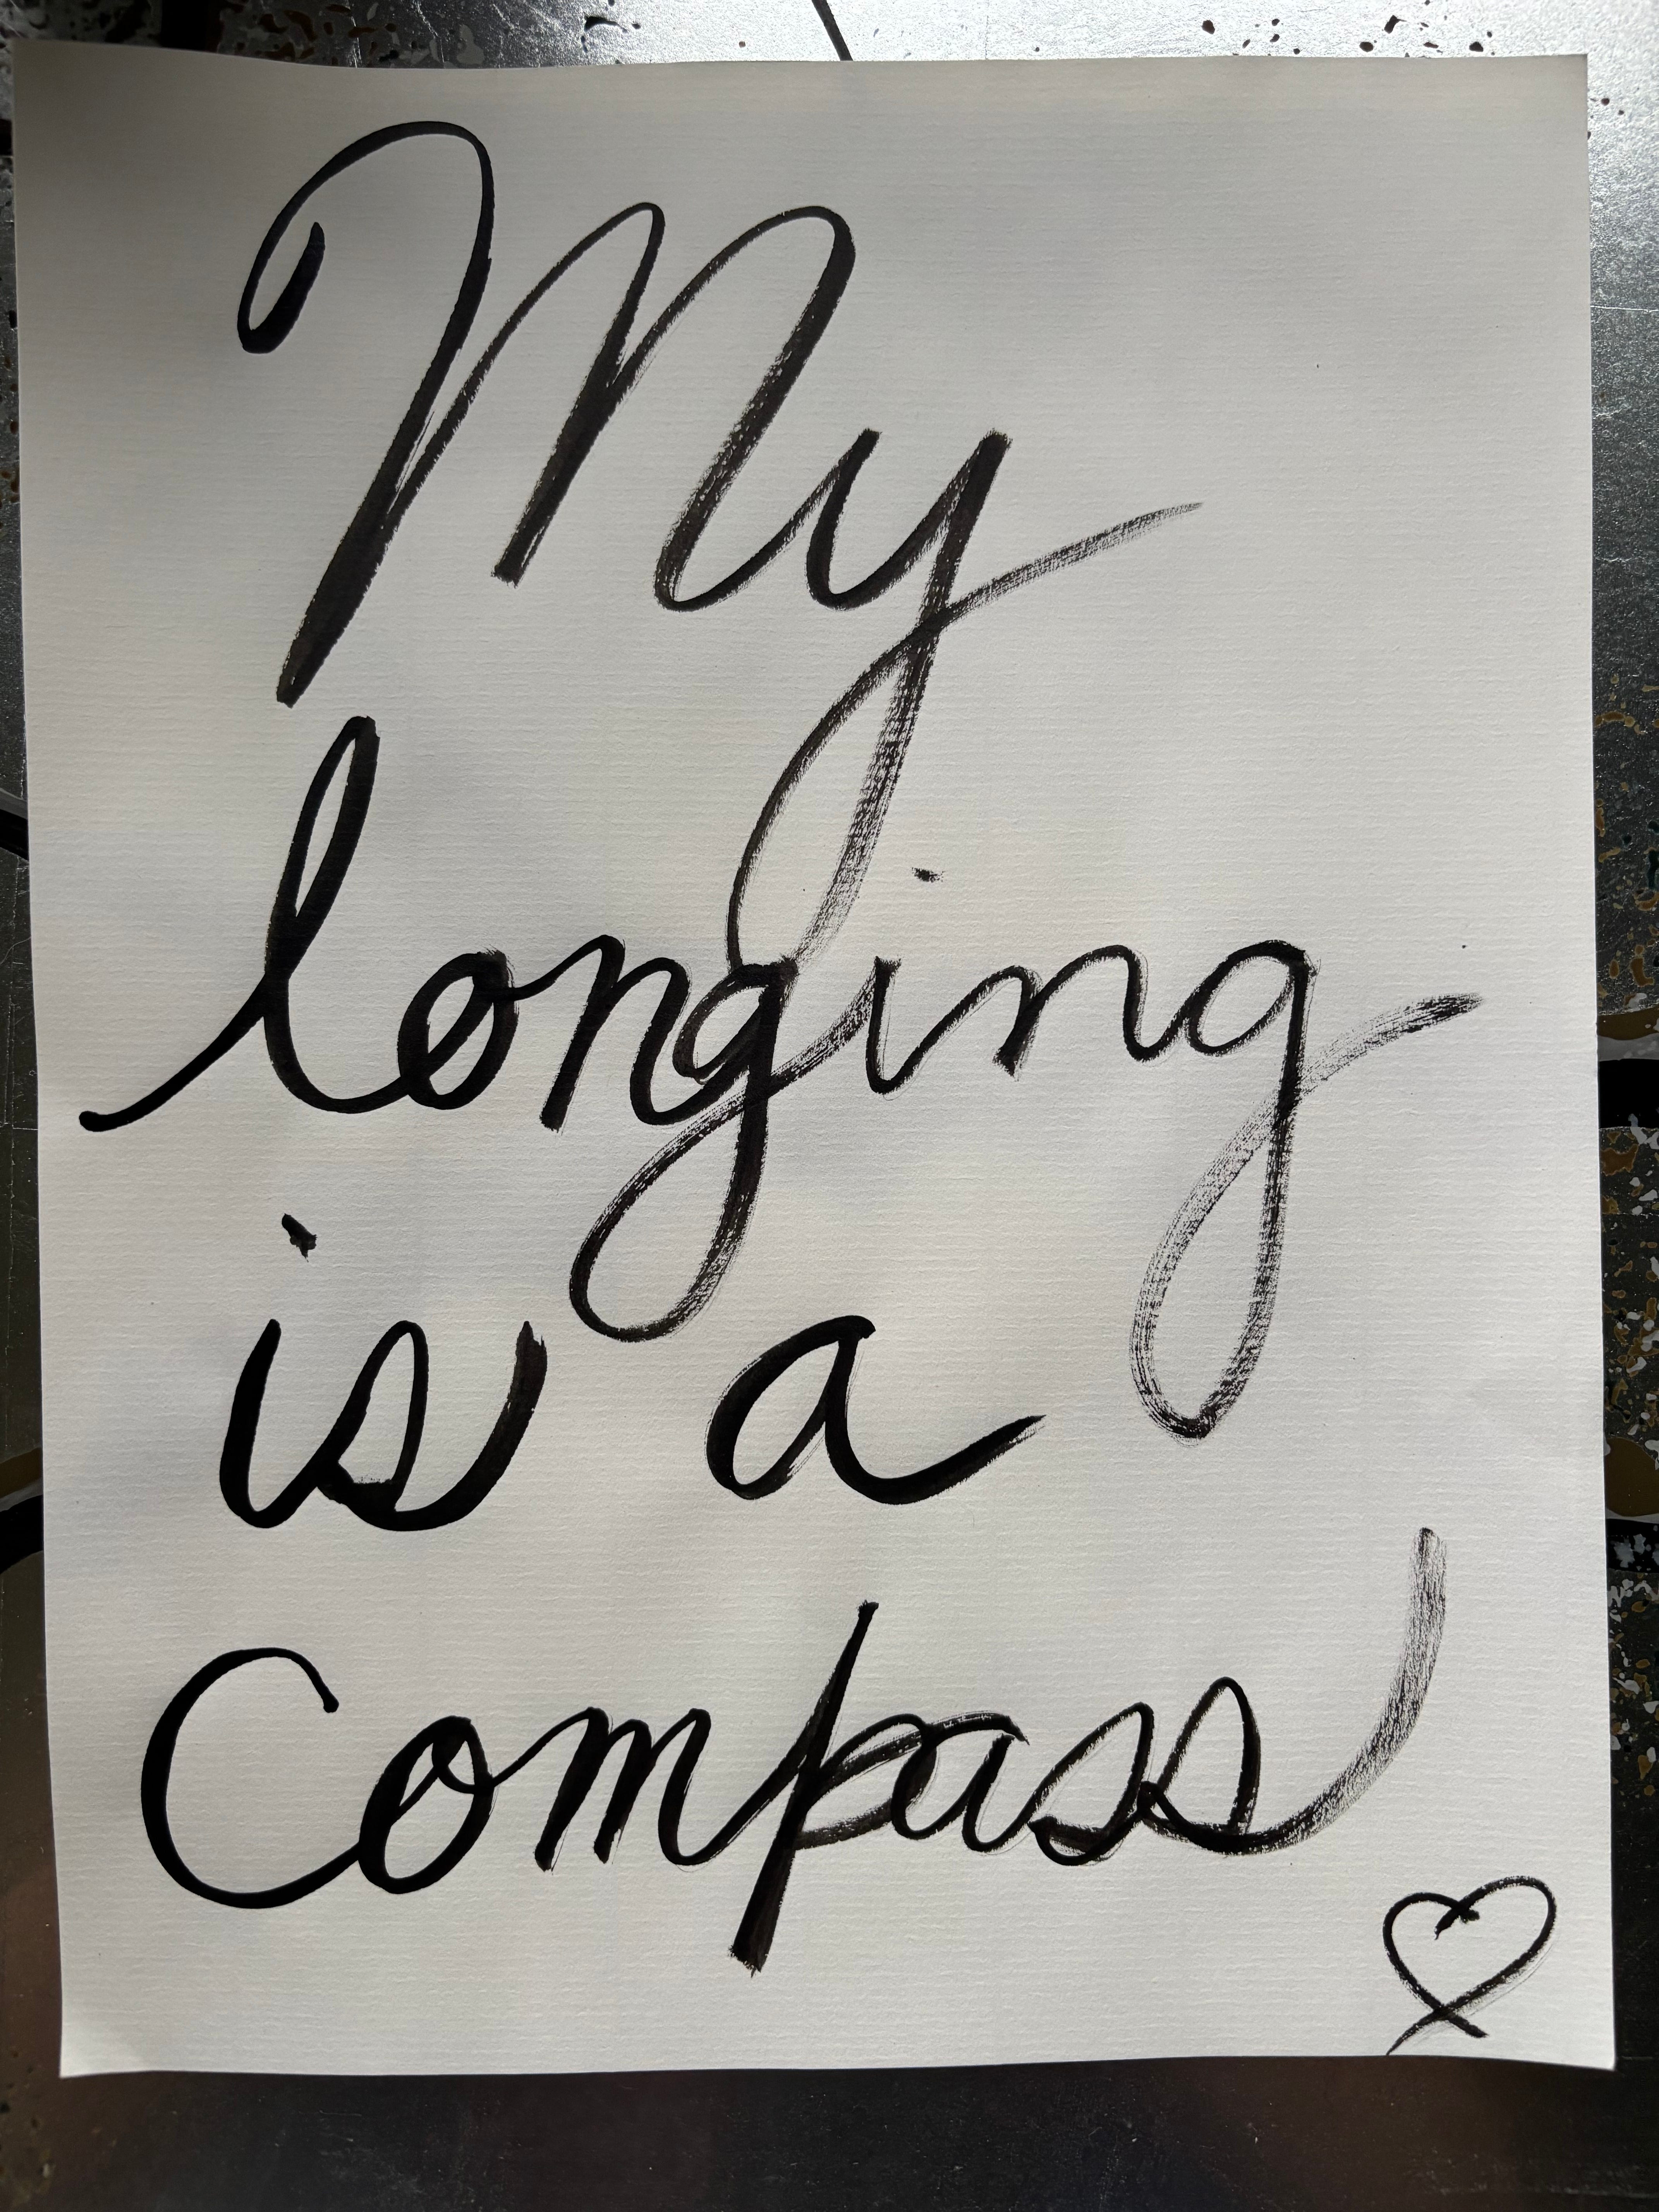 My
longing
is a
Compass